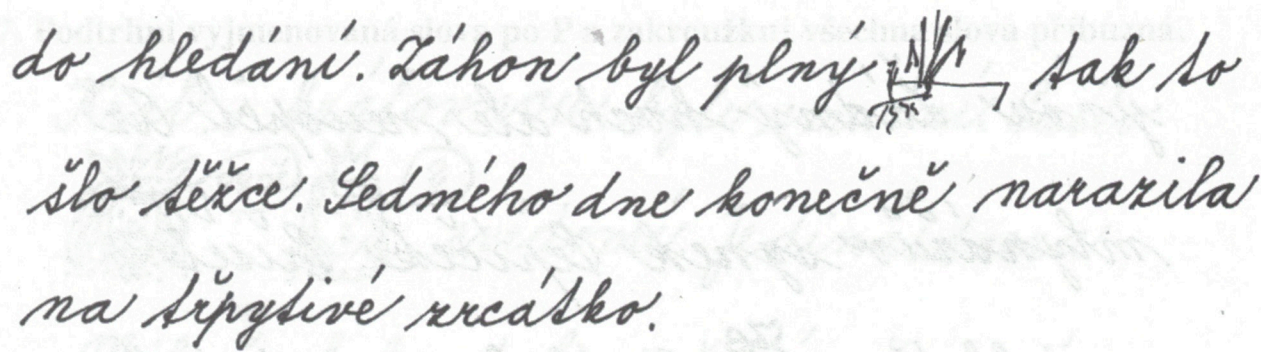 do hledání. Záhon byl plný tak to
šlo těžce. Sedmého dne konečně narazila
na třpytivé zrcátko.